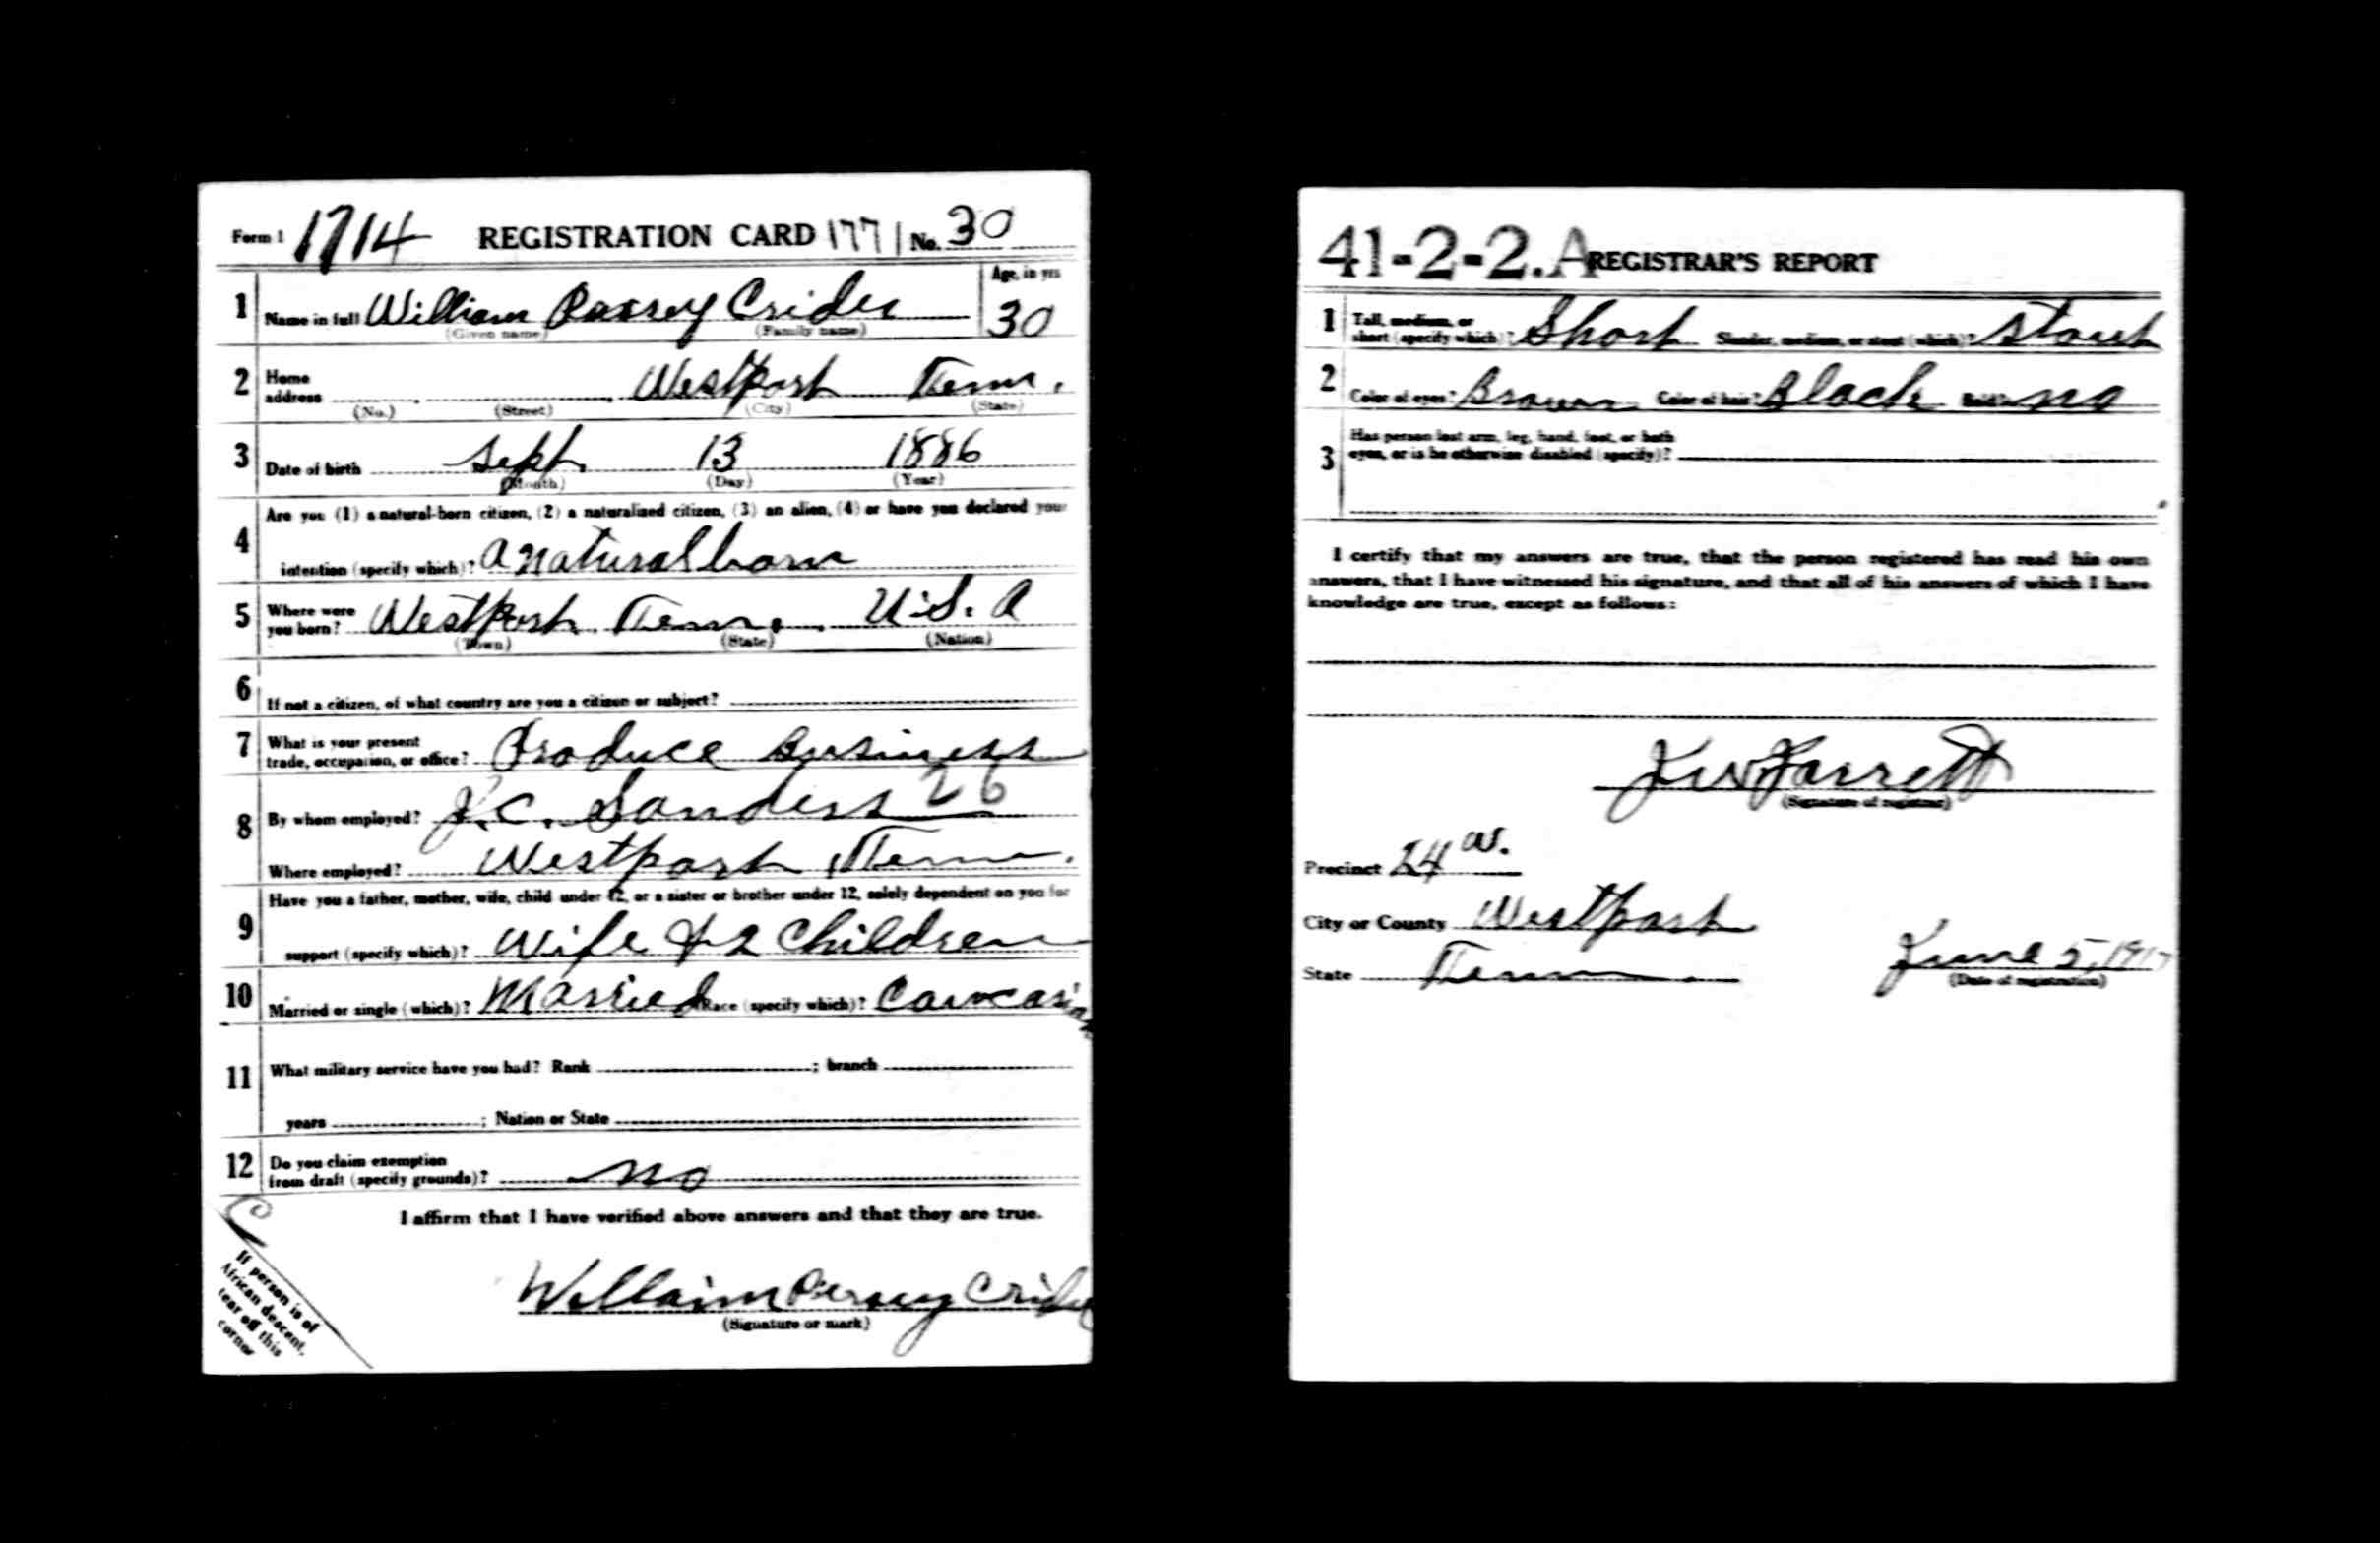 Form 1 1714 REGISTRATION CARD 1771 No. 30
1 Name in full William Crider Age, in yrs 30
(Given name) (Family name)
2 Home address Westport Tenn.
(No.) (Street) (City) (State)
3 Date of birth Sept. 13 1886
(Month) (Day) (Year)
4 Are you (1) a natural-born citizen, (2) a naturalized citizen, (3) an alien, (4) or have you declared your
intention (specify which)? a natural born
5 Where were you born? Westport Tenn. U.S.A
(Town) (State) (Nation)
6 If not a citizen, of what country are you a citizen or subject?
7 What is your present trade, occupation, or office? Produce Business
26
8 By whom employed? J.C. Sanders
Where employed? Westport, Tenn.
9 Have you a father, mother, wife, child under 12, or a sister or brother under 12, solely dependent on you for
support (specify which)? Wife & 2 Children
10 Married or single (which)? Married Race (specify which)? Caucasian
11 What military service have you had? Rank ; branch
years ; Nation or State
12 Do you claim exemption from draft (specify grounds)? no
I affirm that I have verified above answers and that they are true.
Willaim Persey Crider
(Signature or mark)
If person is of
African descent,
tear off this
corner
41-2-2.A REGISTRAR'S REPORT
1 Tall, medium, or short (specify which)? Short Slender, medium, or stout (which)? Stout
2 Color of eyes? Brown Color of hair? Black Bald? no
3 Has person lost arm, leg, hand, foot, or both
eyes, or is he otherwise disabled (specify)?
I certify that my answers are true, that the person registered has read his own
answers, that I have witnessed his signature, and that all of his answers of which I have
knowledge are true, except as follows:
(Signature of registrar)
Precinct 24
City or County Westport
State Tenn. June 5, 1917
(Date of registration)